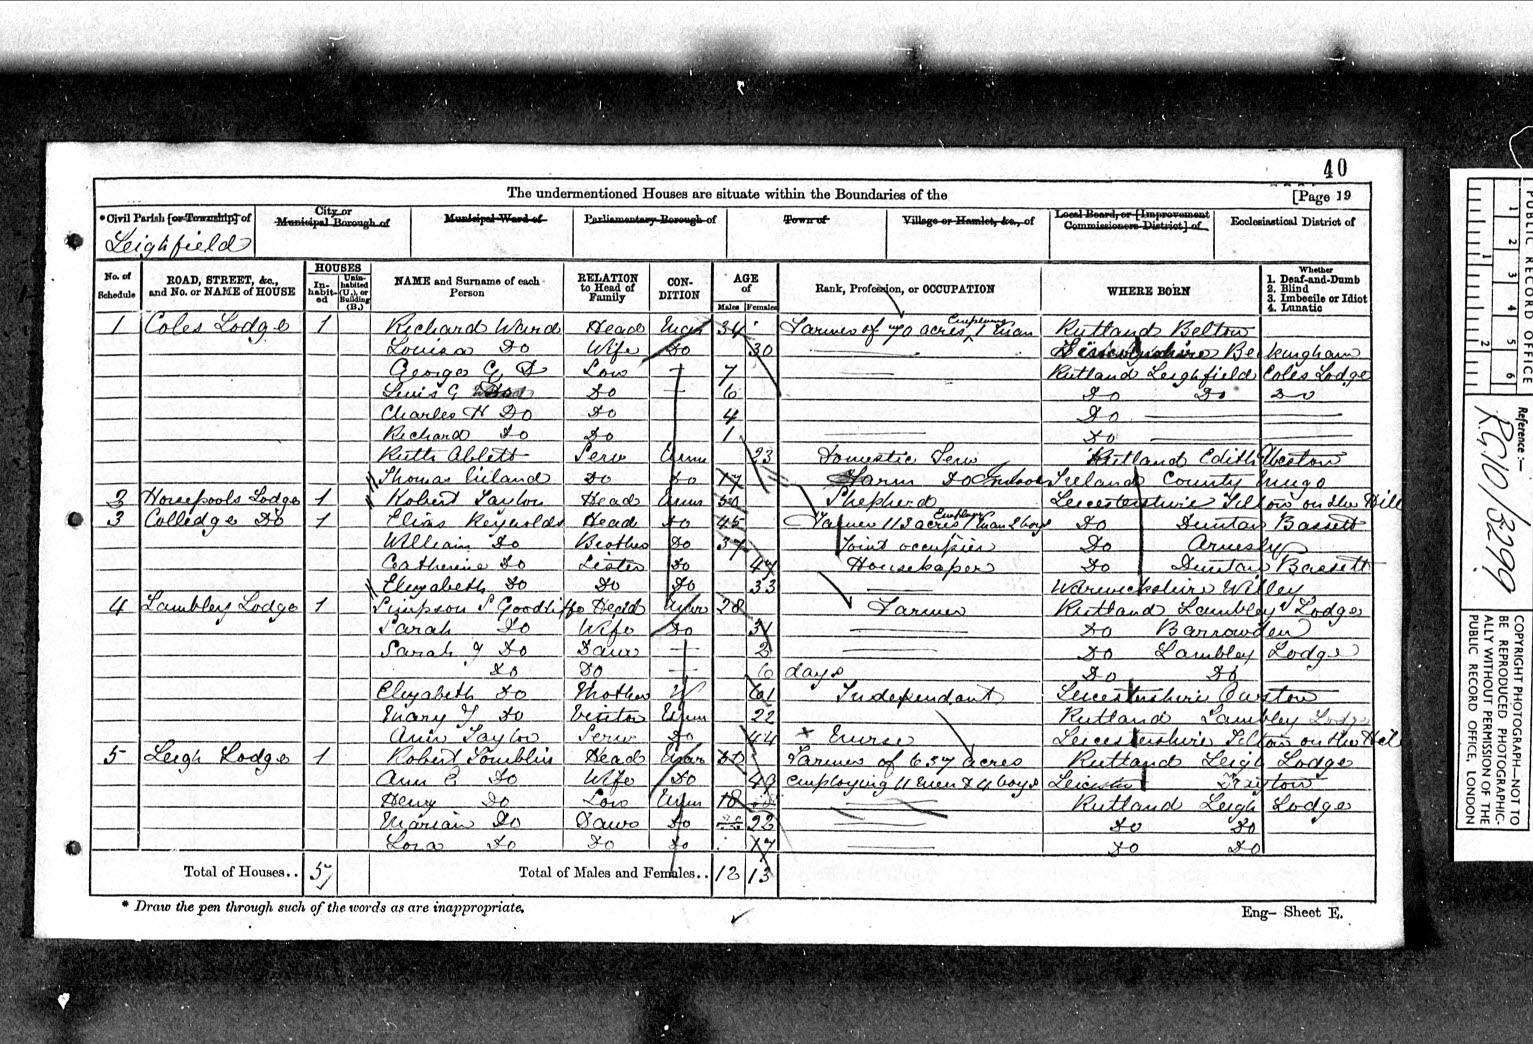 40
The undermentioned Houses are situate within the Boundaries of the [Page 19
*Civil Parish [or Township] of City or Municipal Borough of Municipal Ward of Parliamentary Borough of Town of Village or Hamlet, &c., of Local Board, or [Improvement Commissioners District] of Ecclesiastical District of
Leighfield
No. of Schedule ROAD, STREET, &c., and No. or NAME of HOUSE HOUSES In-habit-ed Unin-habited (U.), or Building (B.) NAME and Surname of each Person RELATION to Head of Family CON-DITION AGE of Males Females Rank, Profession, or OCCUPATION WHERE BORN Whether 1. Deaf-and-Dumb 2. Blind 3. Imbecile or Idiot 4. Lunatic
1 Coles Lodge 1 Richard Ward Head Mar 34 Farmer of 70 acres Employing 1 Man Rutland Belton
Louisa Do Wife Do 30 Beckingham
George Do Son 7 Rutland Leighfield Coles Lodge
Lewis G Do 6 Do Do Do
Charles H Do Do 4 Do
Richard Do Do 1 Do
Ruth Ablett Serv Unm 23 Domestic Serv Rutland Edith Weston
Thomas Do Do 17 Farm Do Indoor Ireland County
2 Horsepools Lodge 1 Robert Taylor Head Unm 50 Shepherd Leicestershire Tilton on the Hill
3 Colledge Do 1 Elias Reynolds Head Do 45 Farmer 113 acres Employ 1 Man 2 boys Do Dunton Bassett
William Do Brother Do 37 Joint occupier Do Arnesly
Catherine Do Sister Do 47 Housekeeper Do Dunton Bassett
Elizabeth Do Do Do 33 Warwickshire Willey
4 Lambley Lodge 1 Simpson S Goodliffe Head Mar 28 Farmer Rutland Lambley Lodge
Sarah Do Wife Do 31 Do Barrowden
Sarah J Do Daur 2 Do Lambley Lodge
Do Do 6 days Do Do
Elizabeth Do Mother W 61 Independant Leicestershire
Mary Do Visitor Unm 22 Rutland Lambley Lodge
Ann Taylor Serv Do 44 Nurse Leicestershire Tilton on the Hill
5 Leigh Lodge 1 Robert Tomblin Head Mar 50 Farmer of 637 acres Rutland Leigh Lodge
Ann E Do Wife Do 49 employing 11 Men & 4 boys Leicester
Henry Do Son Unm 18 Rutland Leigh Lodge
Marian Do Daur Do 22 Do Do
Do Do Do 17 Do Do
Total of Houses.. 5 Total of Males and Females.. 12 13
* Draw the pen through such of the words as are inappropriate. Eng– Sheet E.
PUBLIC RECORD OFFICE
1 2 3 4 5 6
1 2
Reference:–
RG10/3299
COPYRIGHT PHOTOGRAPH—NOT TO
BE REPRODUCED PHOTOGRAPHIC-
ALLY WITHOUT PERMISSION OF THE
PUBLIC RECORD OFFICE, LONDON